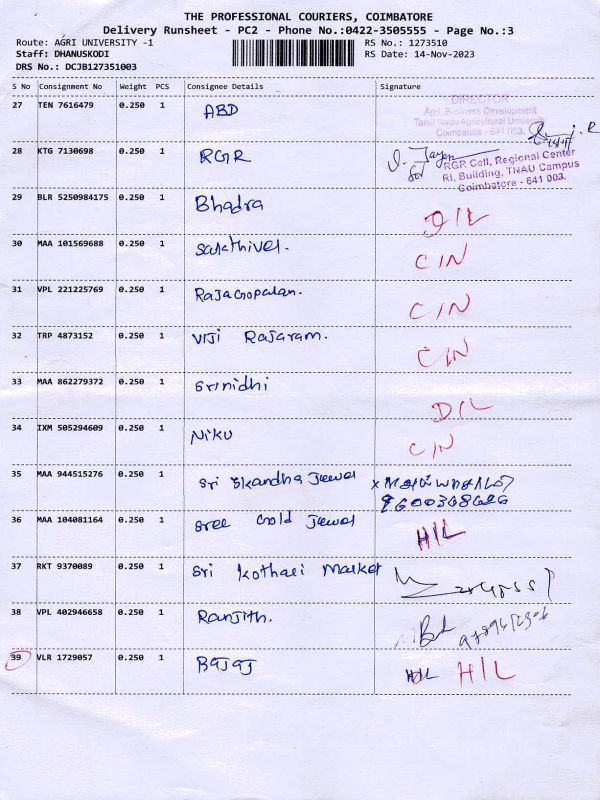 THE PROFESSIONAL COURIERS, COIMBATORE
Delivery Runsheet - PC2 - Phone No.:0422-3505555 - Page No.:3
Route: AGRI UNIVERSITY -1 RS No.: 1273510
Staff: DHANUSKODI RS Date: 14-Nov-2023
DRS No.: DCJB127351003
S No Consignment No Weight PCS Consignee Details Signature
27 TEN 7616479 0.250 1 ABD
DIRECTOR
Agri. Business Development
Tamil Nadu Agricultural University
Coimbatore - 641 003.
28 KTG 7130698 0.250 1 RGR
RGR Cell, Regional Center
RI, Building, TNAU Campus
Coimbatore - 641 003.
29 BLR 5250984175 0.250 1 Bhadra D/L
30 MAA 101569688 0.250 1 Sakthivel. C/N
31 VPL 221225769 0.250 1 Rajagopalan. C/N
32 TRP 4873152 0.250 1 Viji Rajaram. C/N
33 MAA 862279372 0.250 1 Srinidhi D/L
34 IXM 505294609 0.250 1 Niku C/N
35 MAA 944515276 0.250 1 Sri Skandha Jewel
36 MAA 104081164 0.250 1 Sree Gold Jewel H/L
37 RKT 9370089 0.250 1 Sri Kothari Market
38 VPL 402946658 0.250 1 Ranjith.
39 VLR 1729057 0.250 1 Bajaj H/L H/L